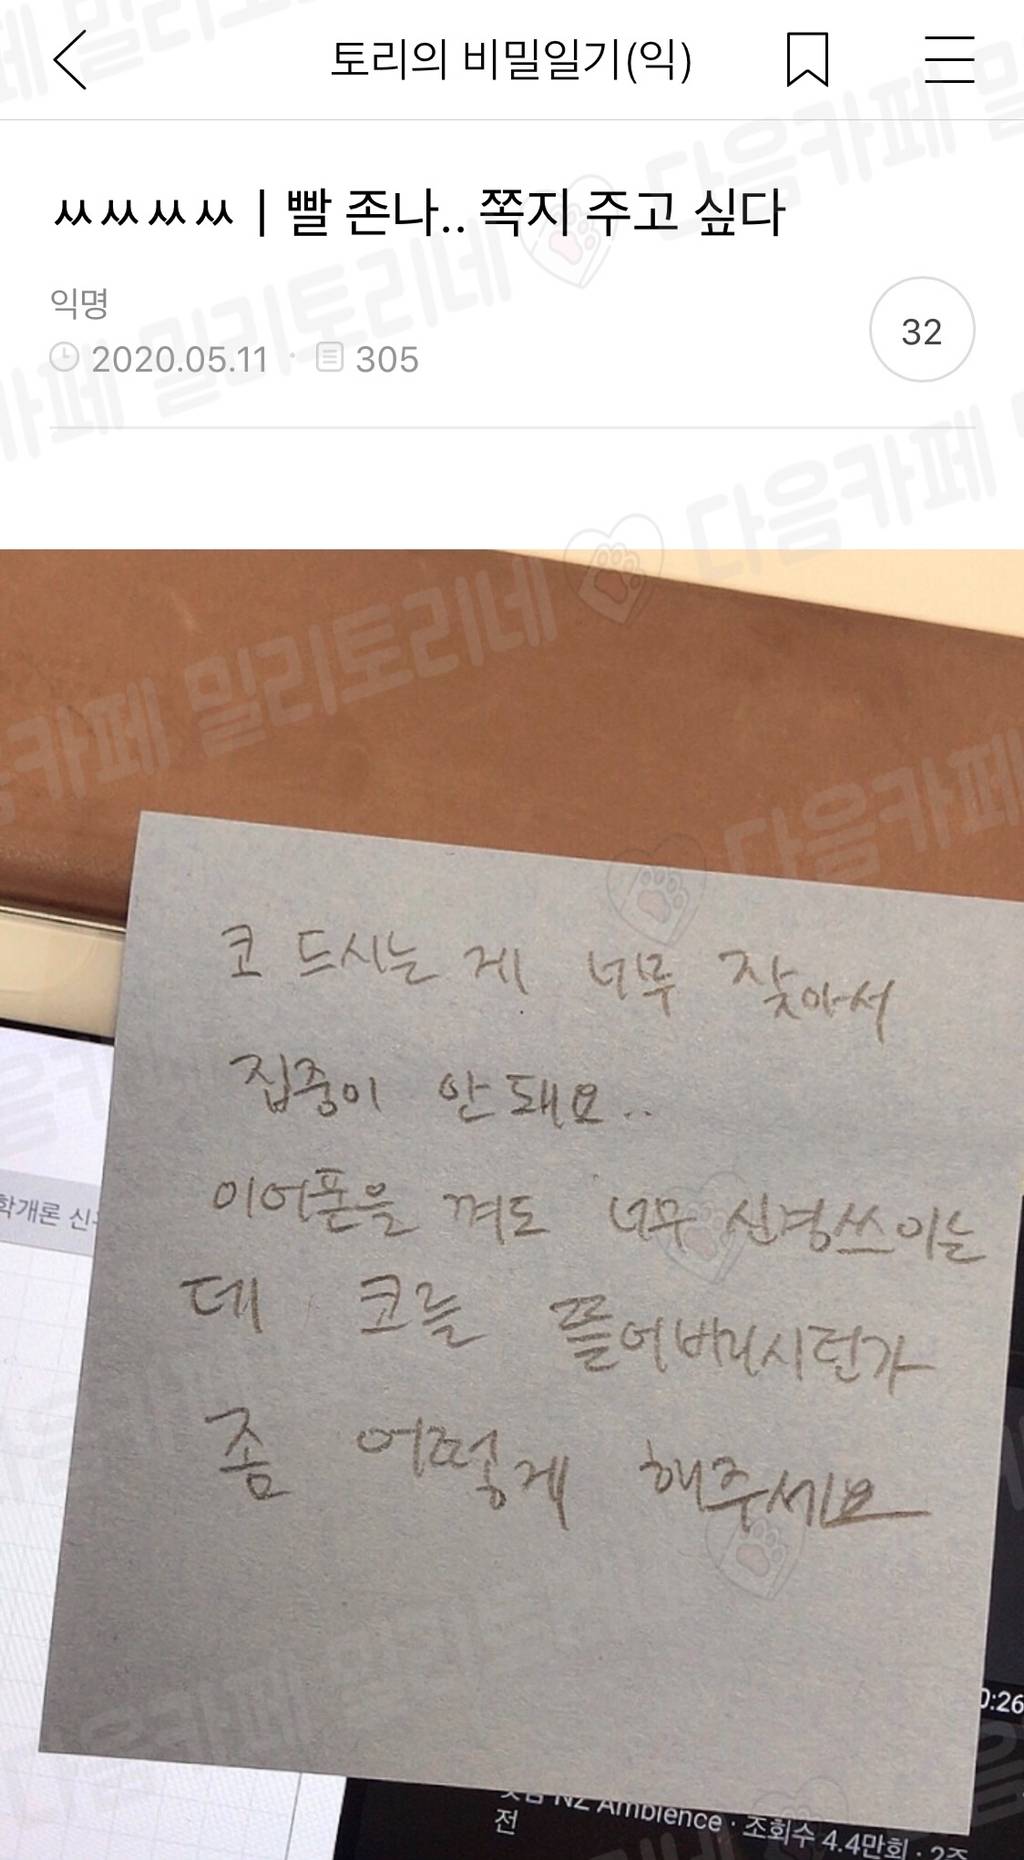 토리의 비밀일기(익)
ㅆㅆㅆㅆ | 빨 존나.. 쪽지 주고 싶다
익명
2020.05.11 · 305
32
다음카페 밀리토리네
코 드시는 게 너무 잦아서
집중이 안돼요..
이어폰을 껴도 너무 신경쓰이는
데 코를 뜰어버리시던가
좀 어떻게 해주세요
학개론
0:26
Ambience · 조회수 4.4만회 · 2주
전